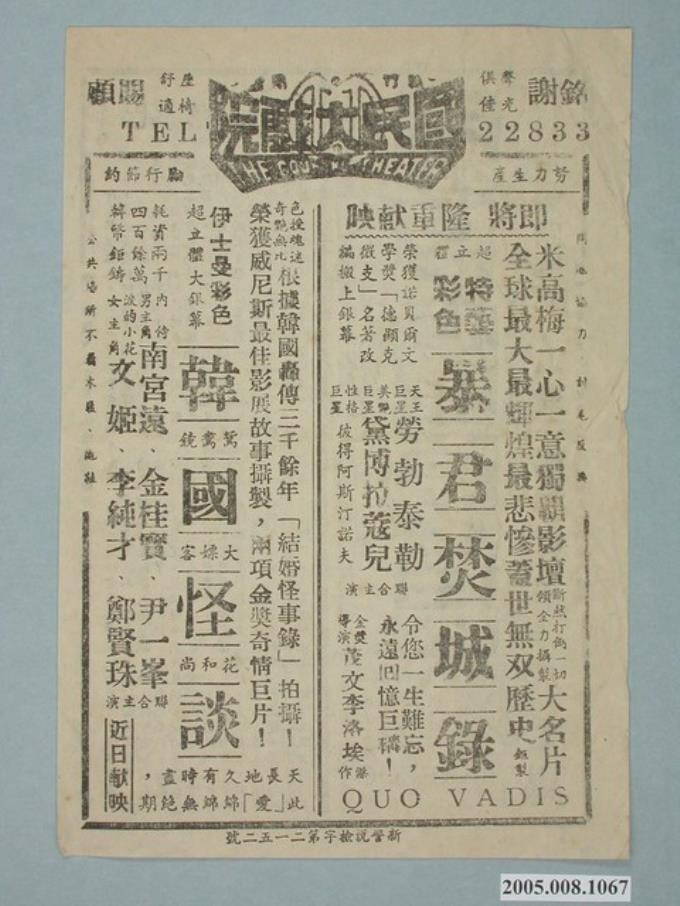 銘謝
聲光俱佳
國民大戲院
THE GOUE MIN THEATER
座椅舒適
賜顧
TEL
22833
努力生產
勵行節約
米高梅一心一意獨霸影壇斷然打倒一切領全力攝製大名片
全球最大最輝煌最悲慘蓋世無双歷史鉅製
即將隆重獻映
超立體
特藝彩色
暴君焚城錄
榮獲諾貝爾文
學獎「德顯克
微支」名著改
編搬上銀幕
天王巨星 勞勃泰勒
美艷巨星 黛博拉蔻兒
性格巨星 彼得阿斯汀諾夫
聯合主演
令您一生難忘，
永遠回憶巨構！
金獎導演 茂文李洛埃 傑作
QUO VADIS
色授魂迷
奇艷無比
根據韓國轟傳三千餘年「結婚怪事錄」拍攝！
榮獲威尼斯最佳影展故事攝製，兩項金獎奇情巨片！
伊士曼彩色
超立體大銀幕
韓國怪談
鴛鴦鏡
大嫖客
花和尚
耗資兩千
四百餘萬
韓幣鉅鑄
內侍
男主角
南宮遠、金桂寶、尹一峯
淚的小花
女主角
文姬、李純才、鄭賢珠
聯合主演
天長地久有時盡，
此「愛」綿綿無絕期
近日献映
公共場所不着木屐、拖鞋
新警說檢字第二一五二號
2005.008.1067